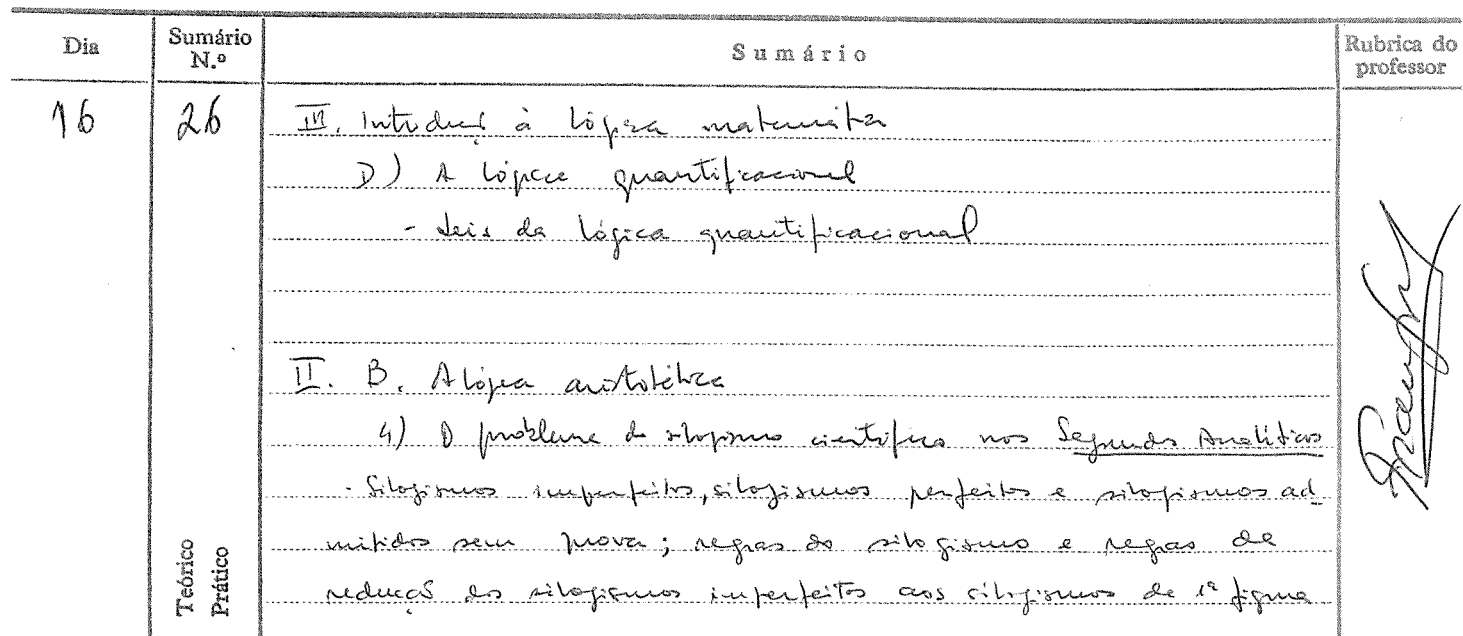 Dia
Sumário N.º
Sumário
Rubrica do professor
16
26
III. Introdução à lógica matemática
D) A lógica quantificacional
- Leis da lógica quantificacional
II. B. A lógica aristotélica
4) O problema do silogismo científico nos Segundos Analíticos
- Silogismos imperfeitos, silogismos perfeitos e silogismos ad
mitidos sem prova; regras do silogismo e regras de
redução dos silogismos imperfeitos aos silogismos de 1ª figura
Teórico
Prático